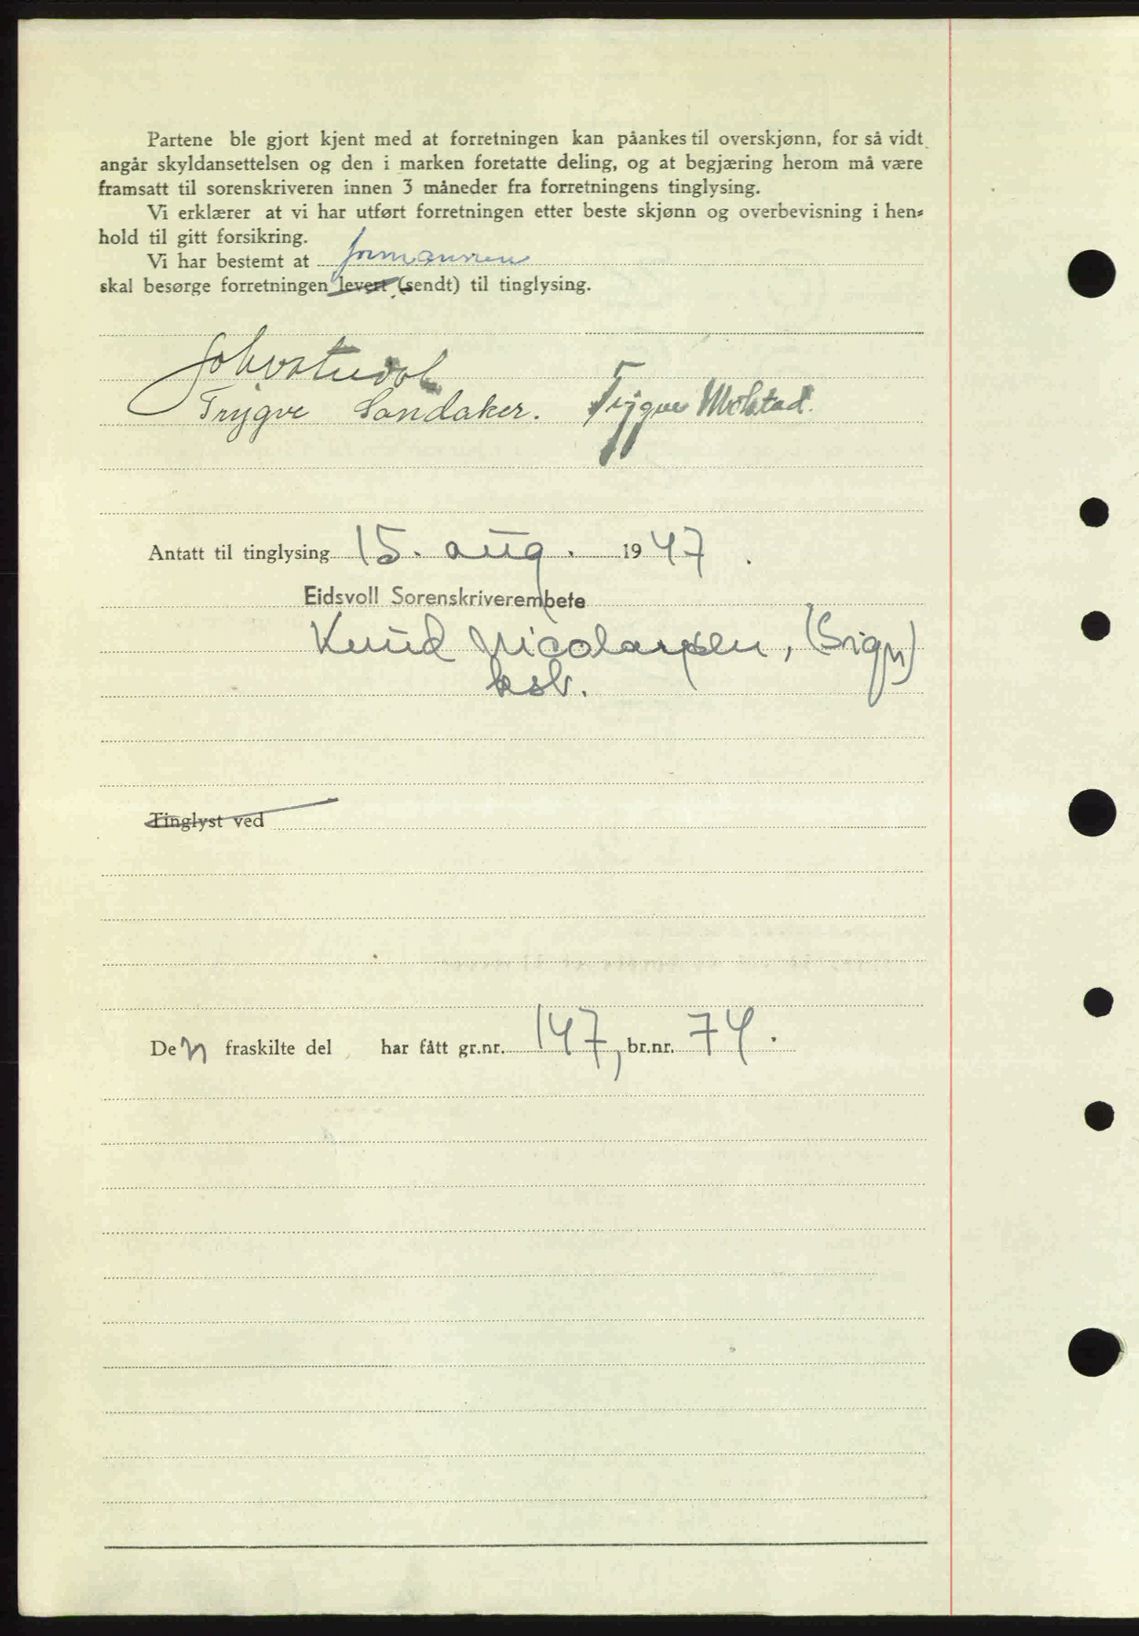 Partene ble gjort kjent med at forretningen kan påankes til overskjønn, for så vidt
angår skyldansettelsen og den i marken foretatte deling, og at begjæring herom må være
framsatt til sorenskriveren innen 3 måneder fra forretningens tinglysing.
Vi erklærer at vi har utført forretningen etter beste skjønn og overbevisning i hen-
hold til gitt forsikring.
Vi har bestemt at formannen
skal besørge forretningen levert (sendt) til tinglysing.
Trygve Sandaker. Trygve Molstad.
Antatt til tinglysing 15. aug. 1947.
Eidsvoll Sorenskriverembete
Knud Nicolaysen, (sign)
Tinglyst ved
Den fraskilte del har fått gr.nr. 147, br.nr. 74.